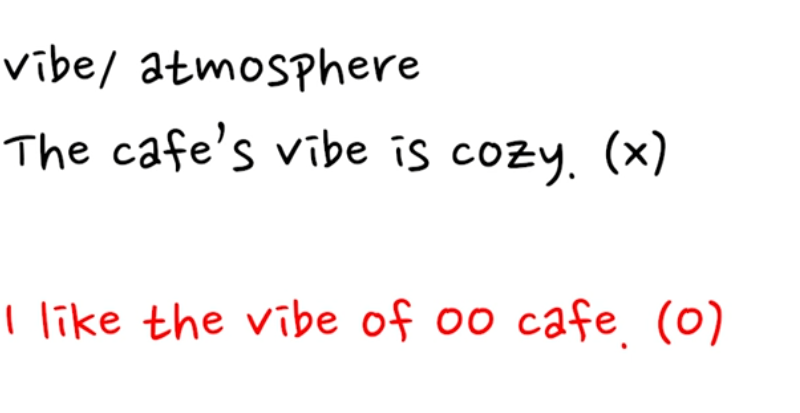 vibe/ atmosphere
The cafe's vibe is cozy. (x)
I like the vibe of oo cafe. (o)